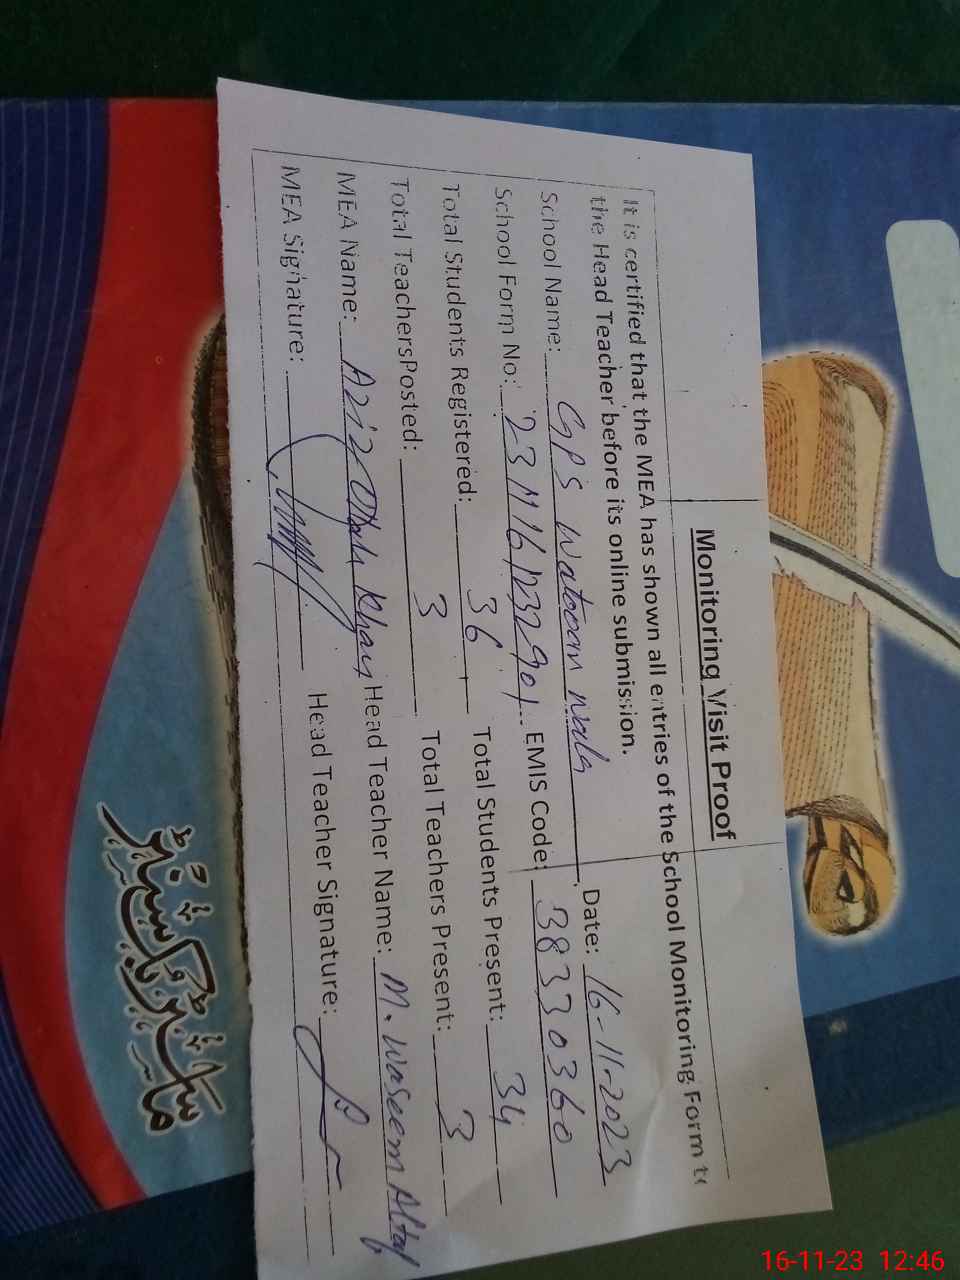 Monitoring Visit Proof
It is certified that the MEA has shown all entries of the School Monitoring Form to
the Head Teacher before its online submission.
School Name: GPS Watooan wala Date: 16-11-2023
School Form No: 23111612323290 EMIS Code: 38330360
Total Students Registered: 36 Total Students Present: 34
Total TeachersPosted: 3 Total Teachers Present: 3
MEA Name: Aziz Ullah Khan Head Teacher Name: M. Waseem Altaf
MEA Signature: Head Teacher Signature:
ماسٹر رجسٹر
16-11-23 12:46